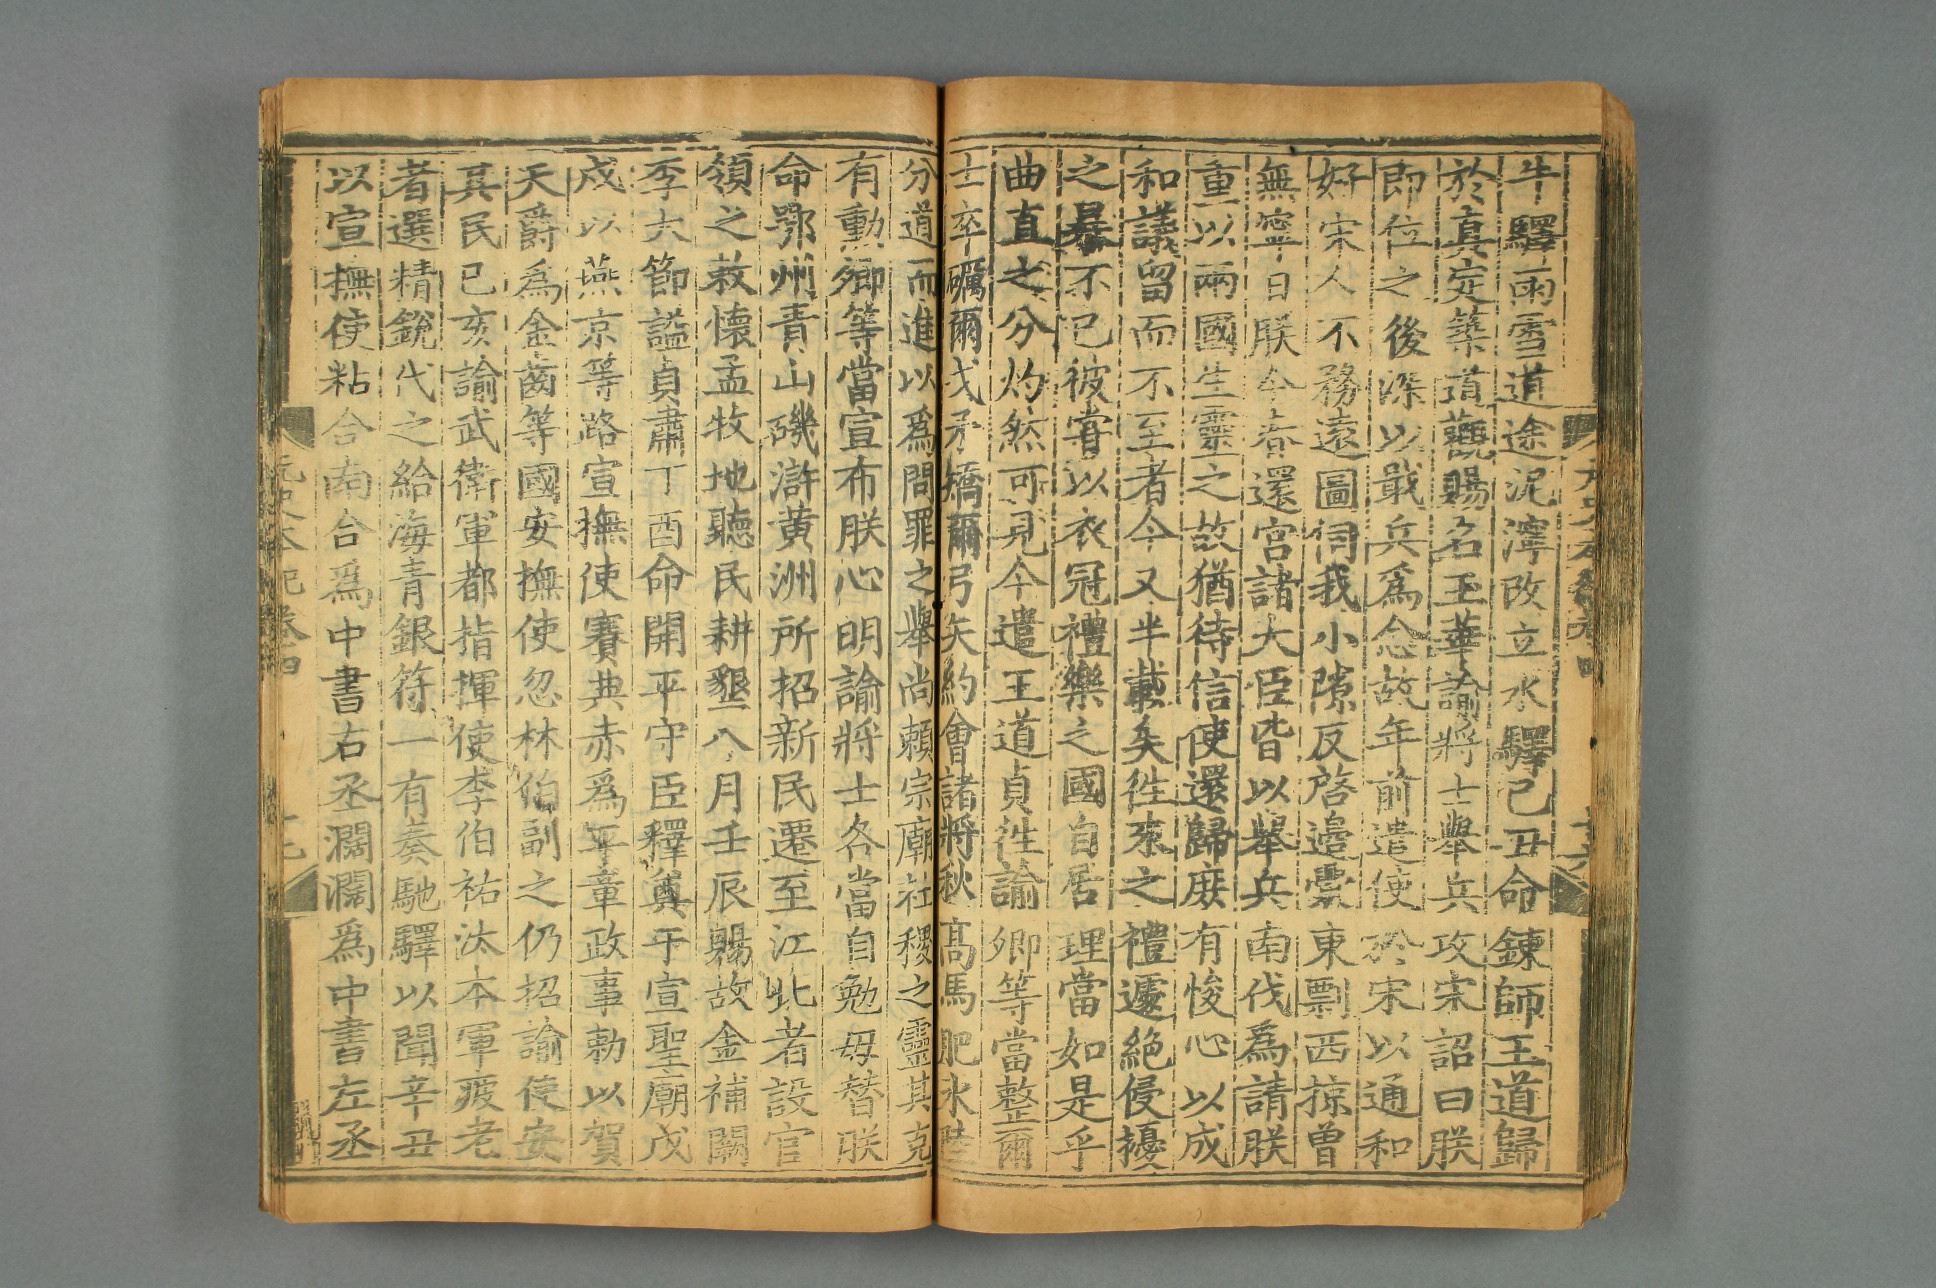 牛驛雨雪道途泥濘改立水驛己丑命鍊師王道歸
於真定築道觀賜名玉華諭將士舉兵攻宋詔曰朕
即位之後深以戢兵爲念故年前遣使於宋以通和
好宋人不務遠圖伺我小隙反啓邊釁東剽西掠曾
無寧日朕今春還宮諸大臣皆以舉兵南伐爲請朕
重以兩國生靈之故猶待信使還歸庶有悛心以成
和議留而不至者今又半載矣徃來之禮遽絕侵擾
之暴不已彼嘗以衣冠禮樂之國自居理當如是乎
曲直之分灼然可見今遣王道貞徃諭卿等當整爾
士卒礪爾戈矛矯爾弓矢約會諸將秋高馬肥水陸
分道而進以爲問罪之舉尚賴宗廟社稷之靈其克
有勳卿等當宣布朕心明諭將士各當自勉毋替朕
命鄂州青山磯滸黄洲所招新民遷至江北者設官
領之敕懷孟牧地聽民耕墾八月壬辰賜故金補闕
李大節謚貞肅丁酉命開平守臣釋奠于宣聖廟戊
戌以燕京等路宣撫使賽典赤爲平章政事勅以賀
天爵爲金齒等國安撫使忽林伯副之仍招諭使安
其民己亥諭武衛軍都指揮使李伯祐汰本軍疲老
者選精銳代之給海青銀符一有奏馳驛以聞辛丑
以宣撫使粘合南合爲中書右丞濶濶爲中書左丞
元史本紀卷四